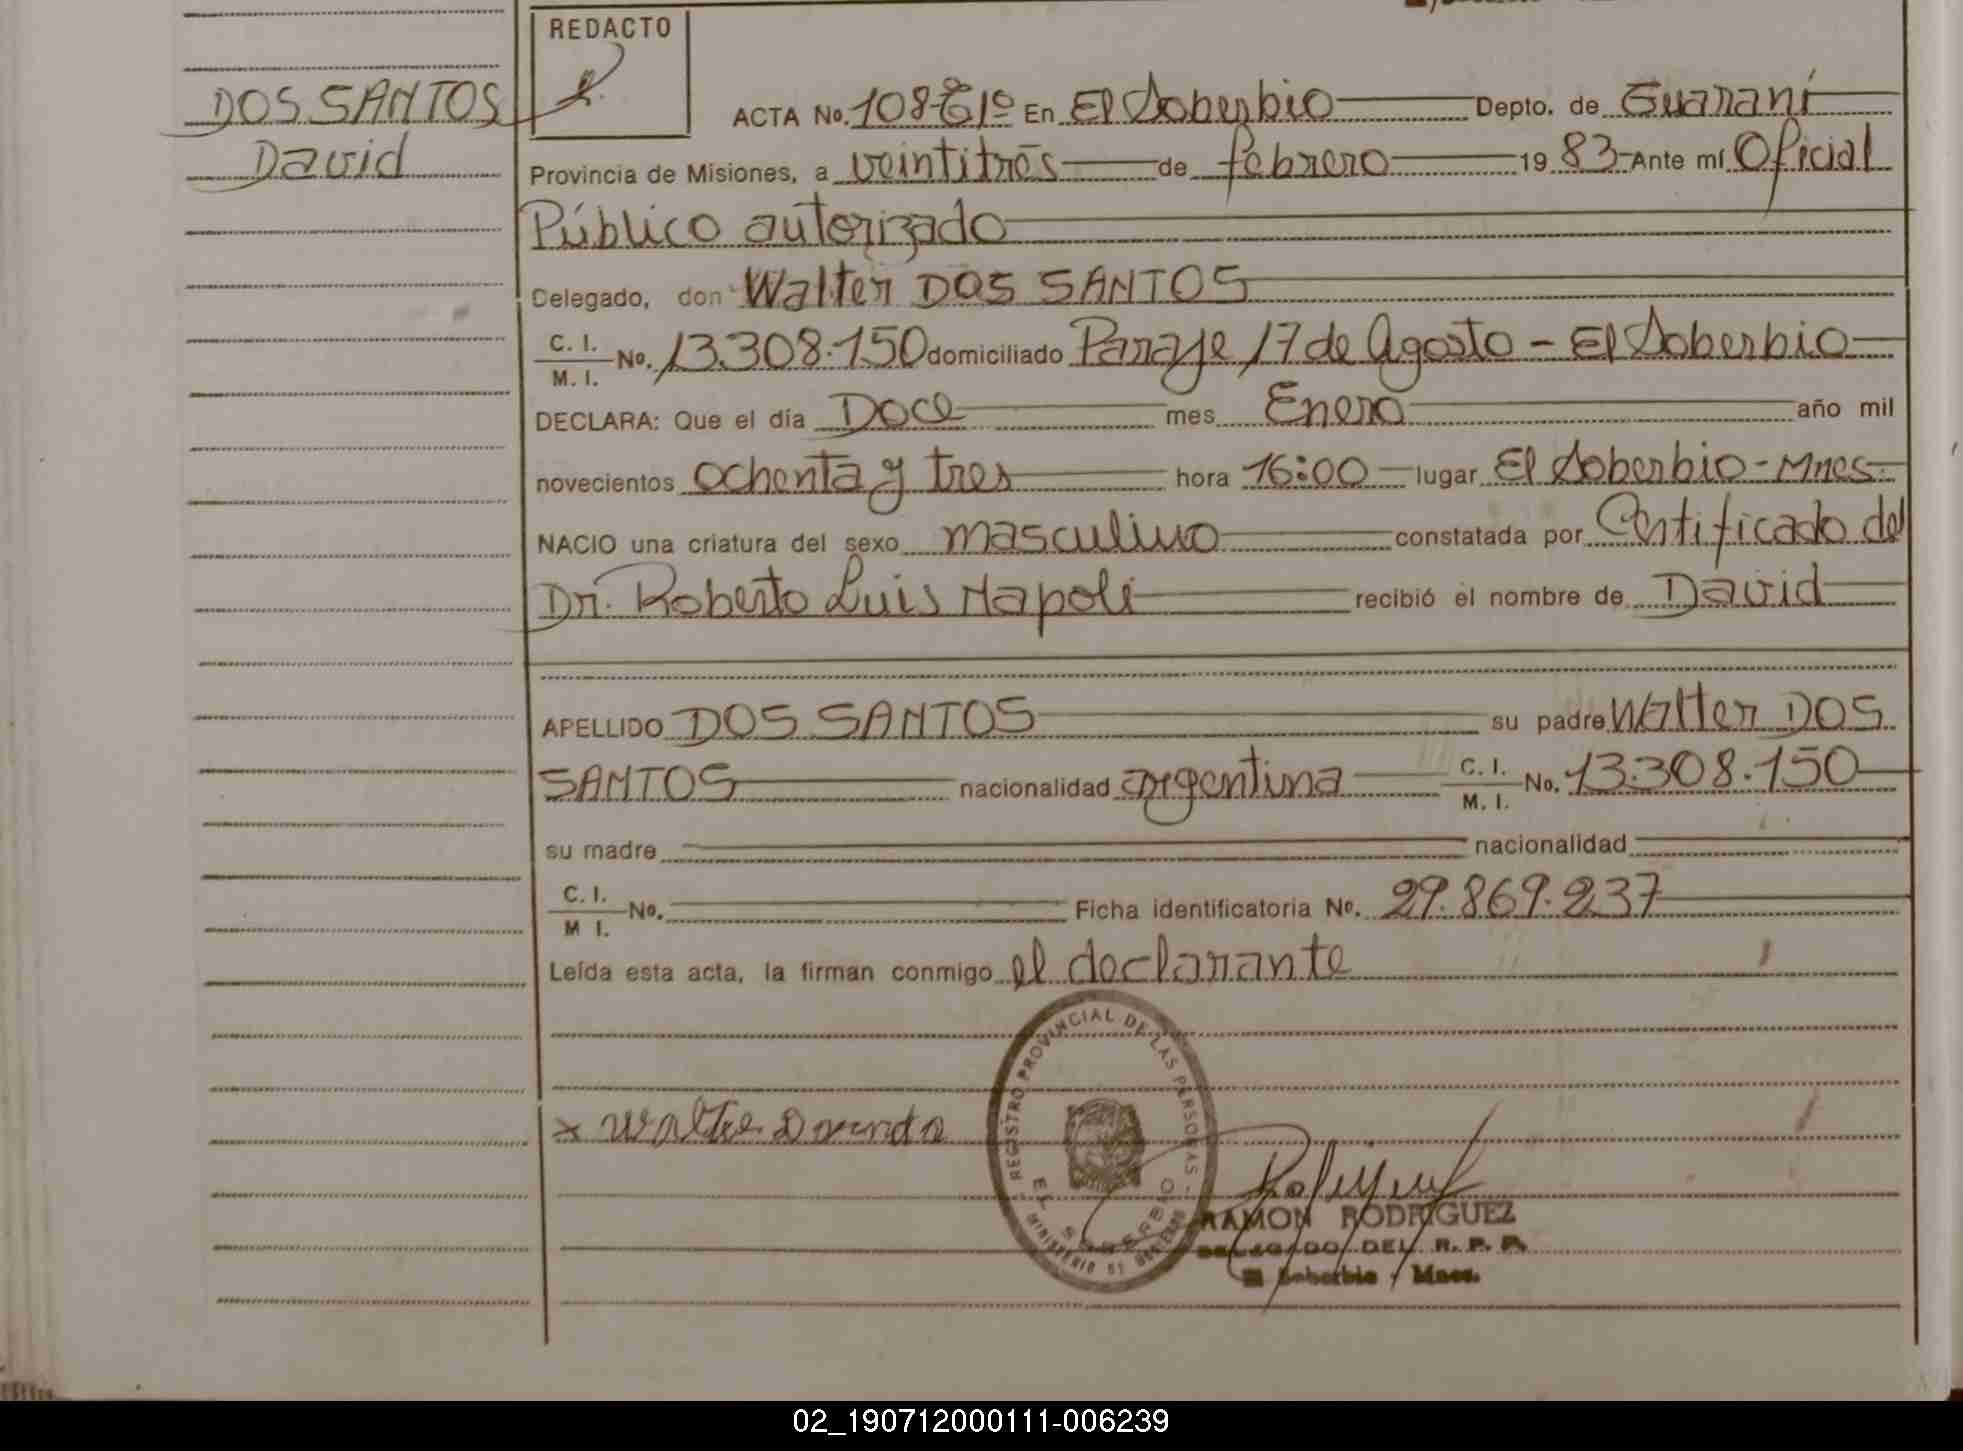 REDACTO
DOS SANTOS
David
ACTA No. 108-Tº1º En El Soberbio Depto. de Guaraní
Provincia de Misiones, a veintitrés de febrero 1983 Ante mí Oficial
Público autorizado
Delegado, don Walter DOS SANTOS
C. I.
M. I. No. 13.308.150 domiciliado Paraje 17 de Agosto - El Soberbio
DECLARA: Que el día Doce mes Enero año mil
novecientos ochenta y tres hora 16:00 lugar El Soberbio - Mnes.
NACIO una criatura del sexo masculino constatada por Certificado del
Dr. Roberto Luis Napoli recibió el nombre de David
APELLIDO DOS SANTOS su padre Walter DOS
SANTOS nacionalidad argentina C. I.
M. I. No. 13.308.150
su madre nacionalidad
C. I.
M I. No. Ficha identificatoria No. 29.869.237
Leída esta acta, la firman conmigo el declarante
REGISTRO PROVINCIAL DE LAS PERSONAS
EL SOBERBIO
MINISTERIO DE GOBIERNO
x Walter
RAMON RODRIGUEZ
DELEGADO DEL R. P. P.
El Soberbio - Mnes.
02_190712000111-006239